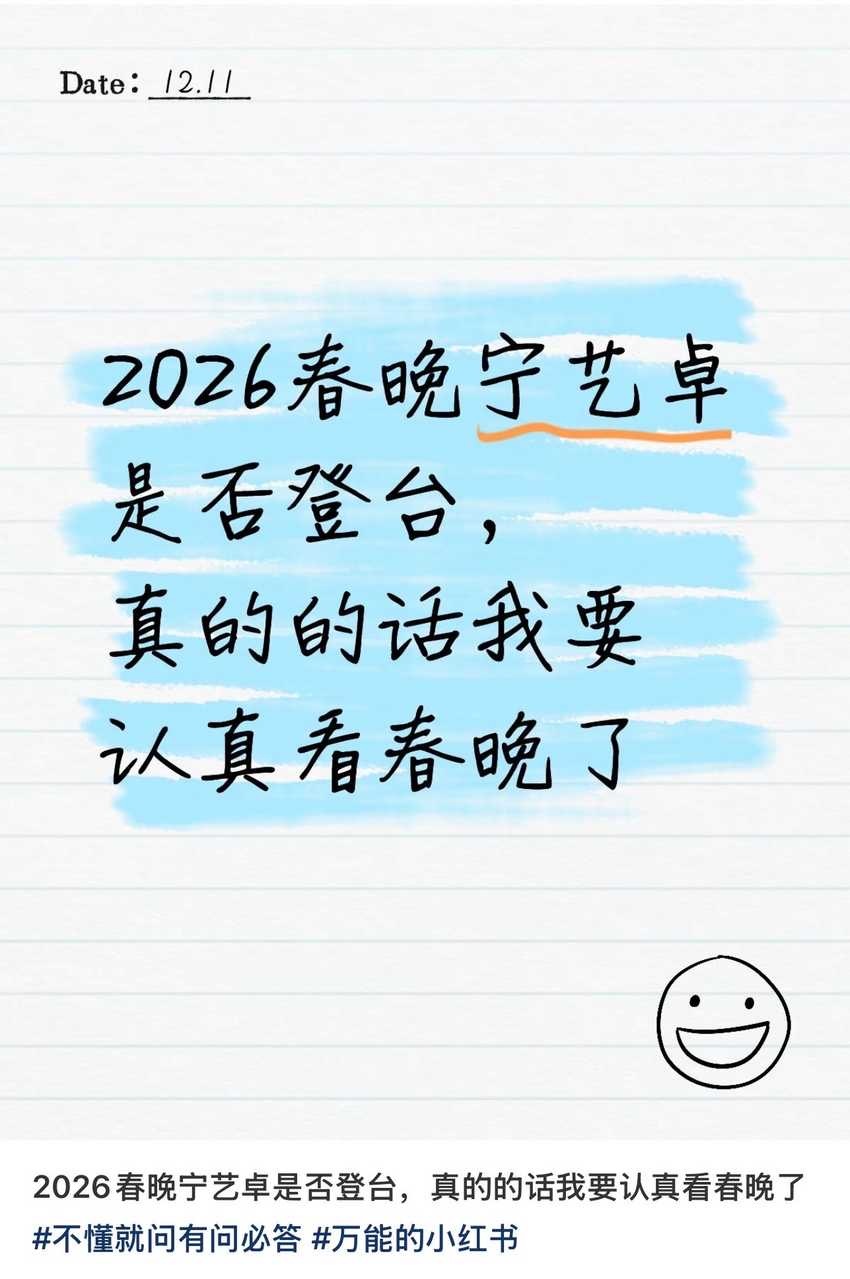 Date: 12.11
2026春晚宁艺卓
是否登台，
真的的话我要
认真看春晚了
2026春晚宁艺卓是否登台，真的的话我要认真看春晚了
#不懂就问有问必答 #万能的小红书